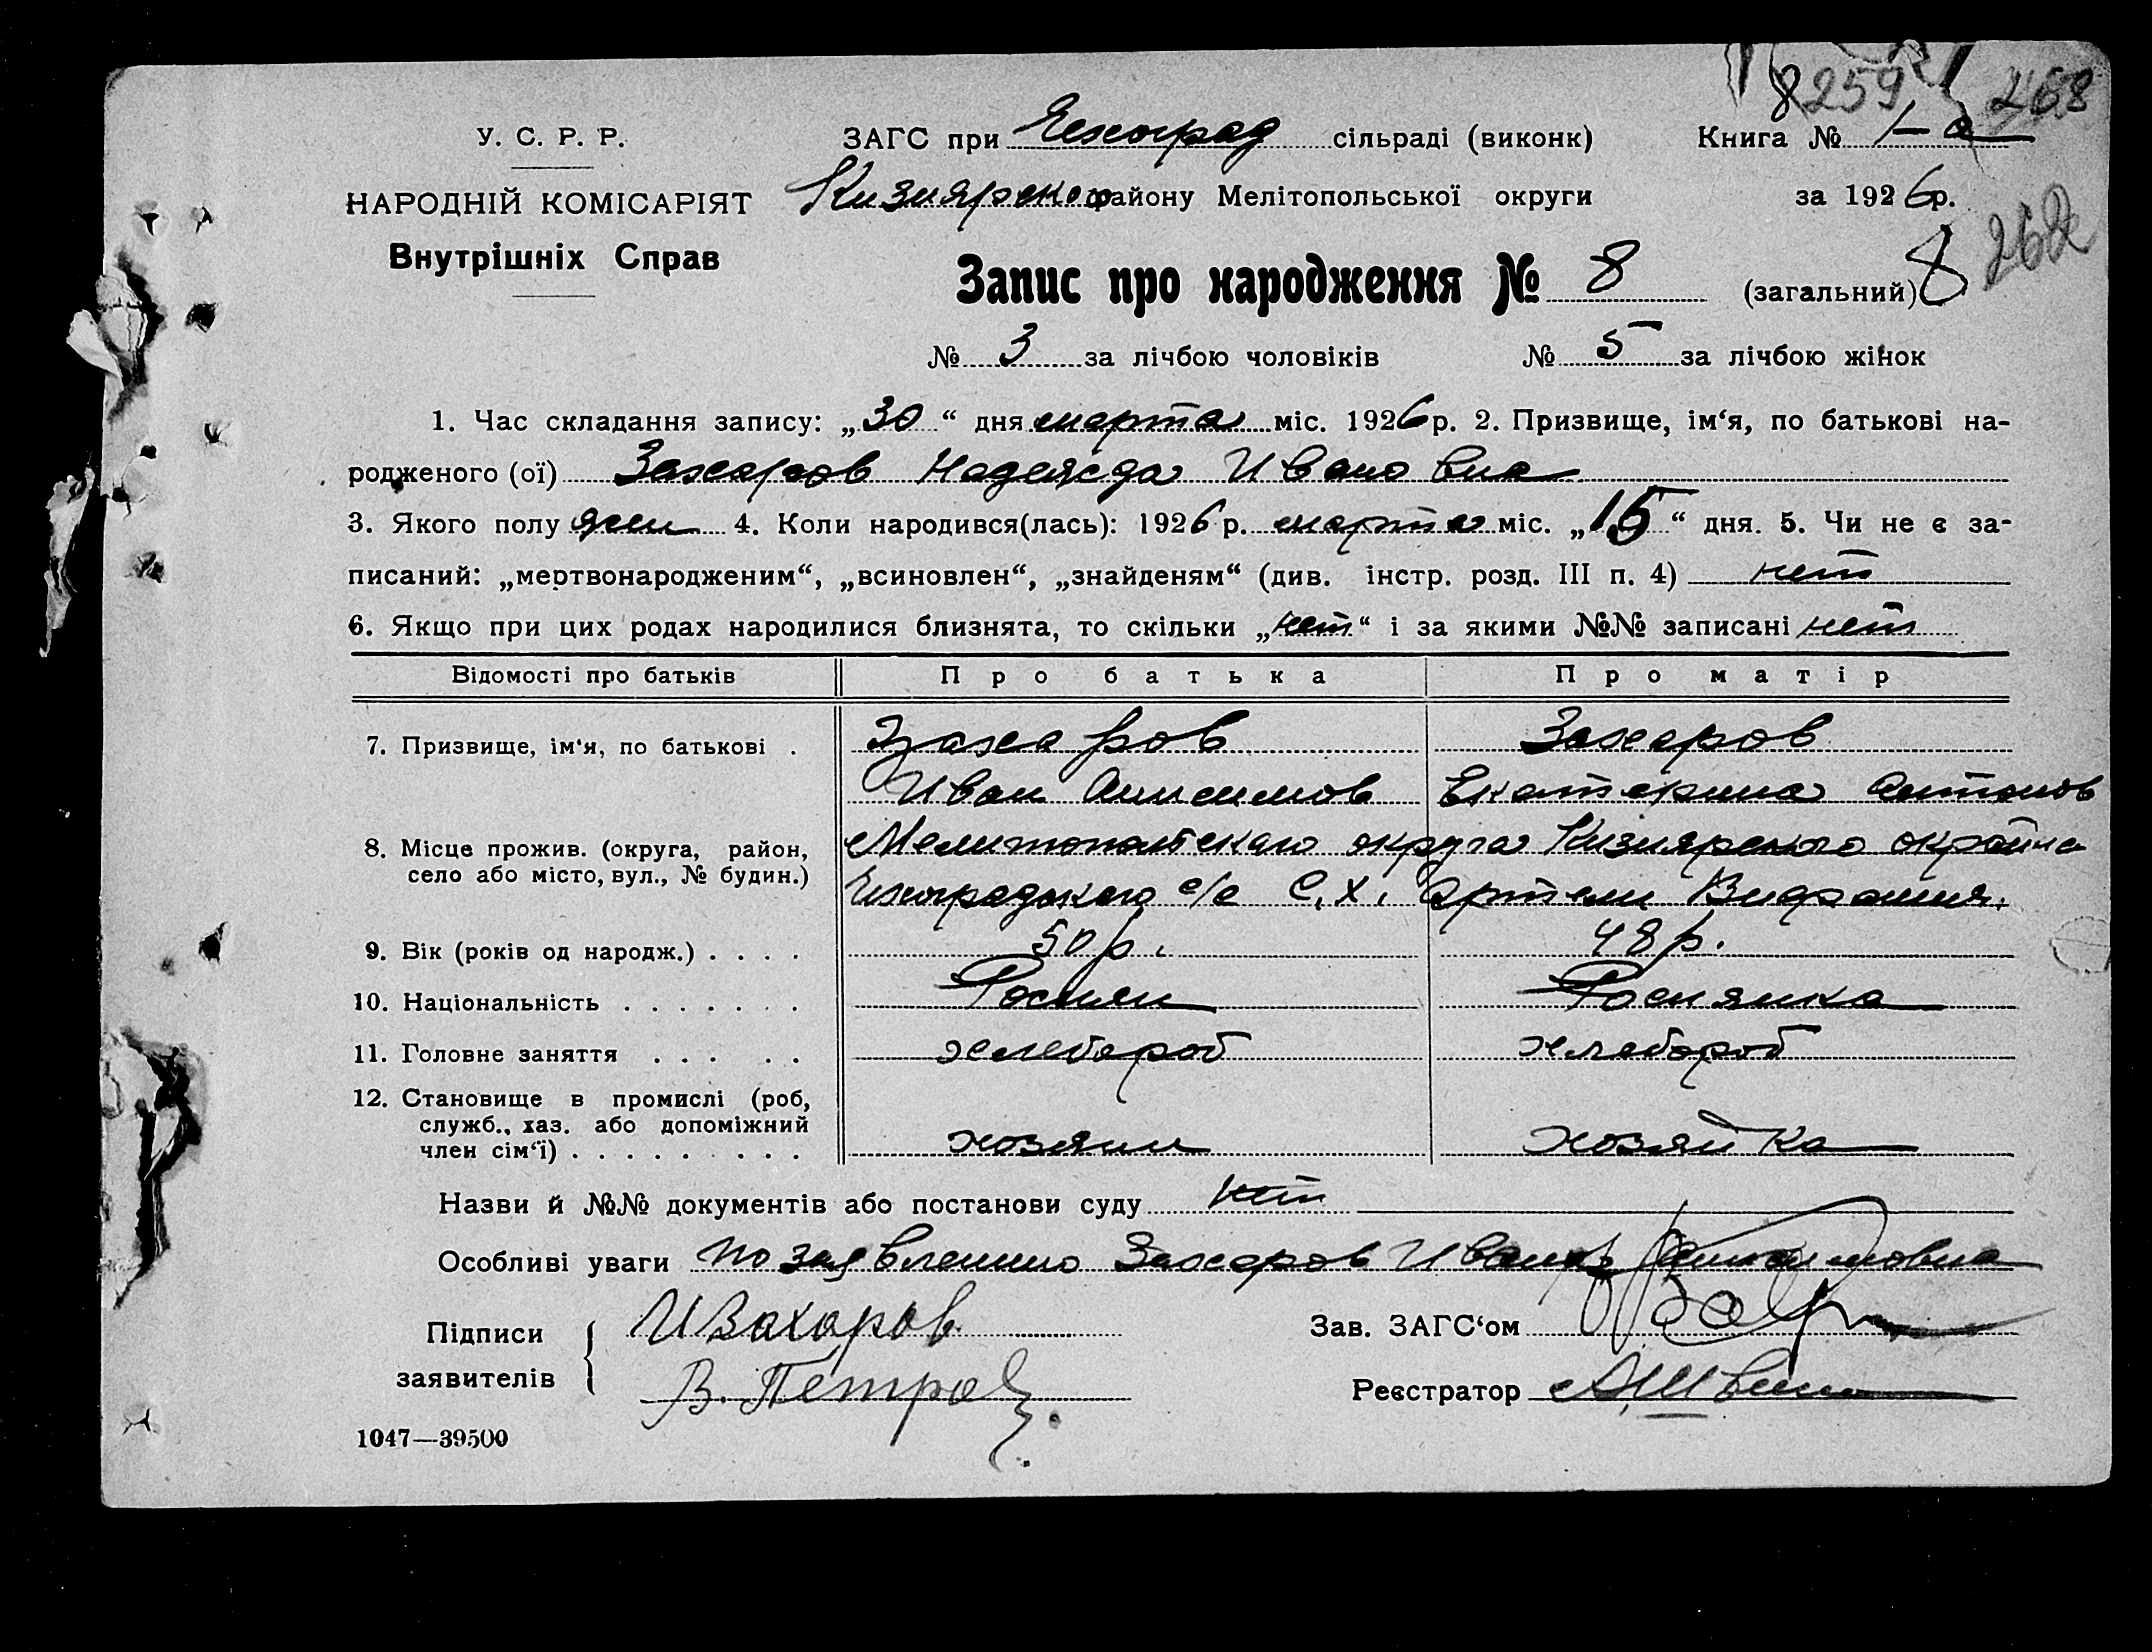 8 259 268
У. С. Р. Р. ЗАГС при сільраді (виконк) Книга № 1-а
НАРОДНІЙ КОМІСАРІЯТ Кизиярского району Мелітопольської округи за 1926р.
262
Внутрішніх Справ
Запис про народження № 8 (загальний) 8
№ 3 за лічбою чоловіків № 5 за лічбою жінок
1. Час складання запису: „30“ дня марта міс. 1926р. 2. Призвище, ім‘я, по батькові на-
родженого (ої) Захаров Надежда Ивановна
3. Якого полу жен 4. Коли народився(лась): 1926 р. марта міс. „15“ дня. 5. Чи не є за-
писаний: „мертвонародженим“, „всиновлен“, „знайденям“ (див. інстр. розд. III п. 4) нет
6. Якщо при цих родах народилися близнята, то скільки „нет“ і за якими №№ записані нет
Відомості про батьків Про батька Про матір
7. Призвище, ім‘я, по батькові . Захаров Захаров
Иван Анисимов Екатерина Антонов
8. Місце прожив. (округа, район, Мелитопольского округа Кизиярского
село або місто, вул., № будин.) с/с С.Х. Артели
9. Вік (років од народж.) . . . . 50 р. 48 р.
10. Національність . . . . . . . Россиян Россиянка
11. Головне заняття . . . . . хлебороб хлебороб
12. Становище в промислі (роб,
служб., хаз. або допоміжний
член сім‘ї) . . . . . . . . . хозяин хозяйка
Назви й №№ документів або постанови суду нет
Особливі уваги по заявлению Захаров Ивана
Підписи И Захаров Зав. ЗАГС‘ом
заявителів В. Петров Реєстратор
1047—39500